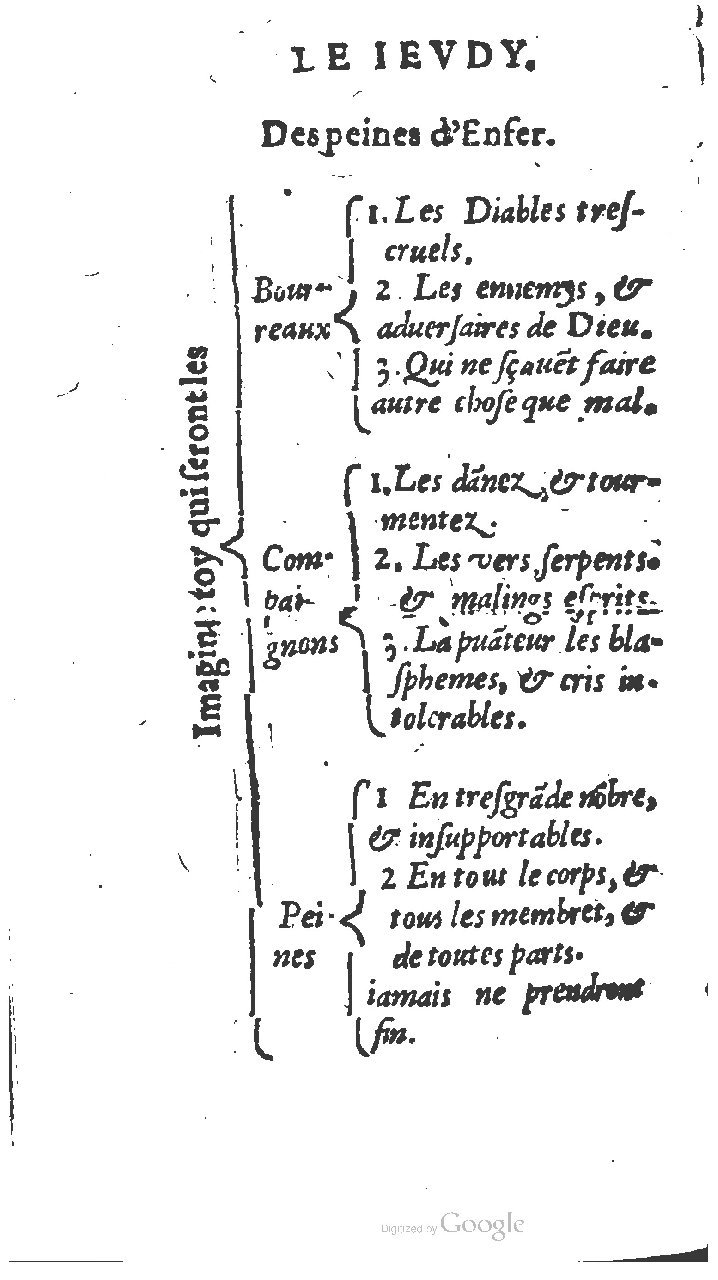 LE IEVDY.
Des peines d'Enfer.
Imagine: toy qui seront les
Bour-
reaux
1. Les Diables tref-
cruels.
2. Les ennemys, &
aduerſaires de Dieu.
3. Qui ne ſçauẽt faire
autre choſe que mal.
Com-
pai-
gnons
1. Les dãnez, & tour-
mentez.
2. Les vers, ſerpents,
& malings eſprits.
3. La puãteur les bla-
ſphemes, & cris in-
tolerables.
Pei-
nes
1 En treſgrãde nõbre,
& inſupportables.
2 En tout le corps, &
tous les membres, &
de toutes parts.
iamais ne prendront
fin.
Digitized by Google